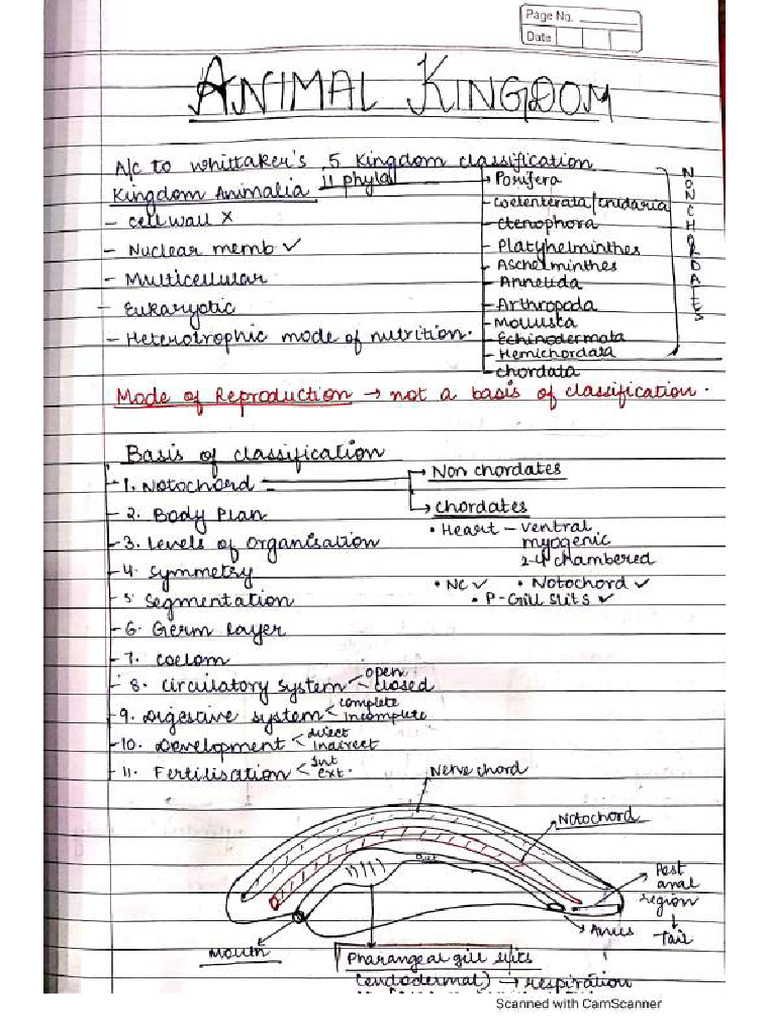 Page No.
Date
ANIMAL KINGDOM
A/c to Whittaker's 5 Kingdom classification
Kingdom Animalia 11 phyla
- cell wall X
- Nuclear memb ✓
- Multicellular
- Eukaryotic
- Heterotrophic mode of nutrition.
Porifera
- Coelenterata/cnidaria
- Ctenophora
- Platyhelminthes
- Aschelminthes
- Annelida
- Arthropoda
- Mollusca
- Echinodermata
- Hemichordata
- chordata
NONCHORDATES
Mode of Reproduction → not a basis of classification.
Basis of classification
1. Notochord
→ Non chordates
→ Chordates
• Heart – ventral
myogenic
2-4 chambered
• NC ✓ • Notochord ✓
• P-Gill slits ✓
2. Body Plan
3. Levels of Organisation
4. Symmetry
5. Segmentation
6. Germ Layer
7. Coelom
8. Circulatory System < open
closed
9. Digestive System < complete
incomplete
10. Development < direct
indirect
11. Fertilisation < Int
ext.
Nerve chord
Notochord
Gut
Post
anal
region
↓
Tail
→ Anus
Mouth
Pharangeal gill slits
(endodermal) → respiration
Scanned with CamScanner